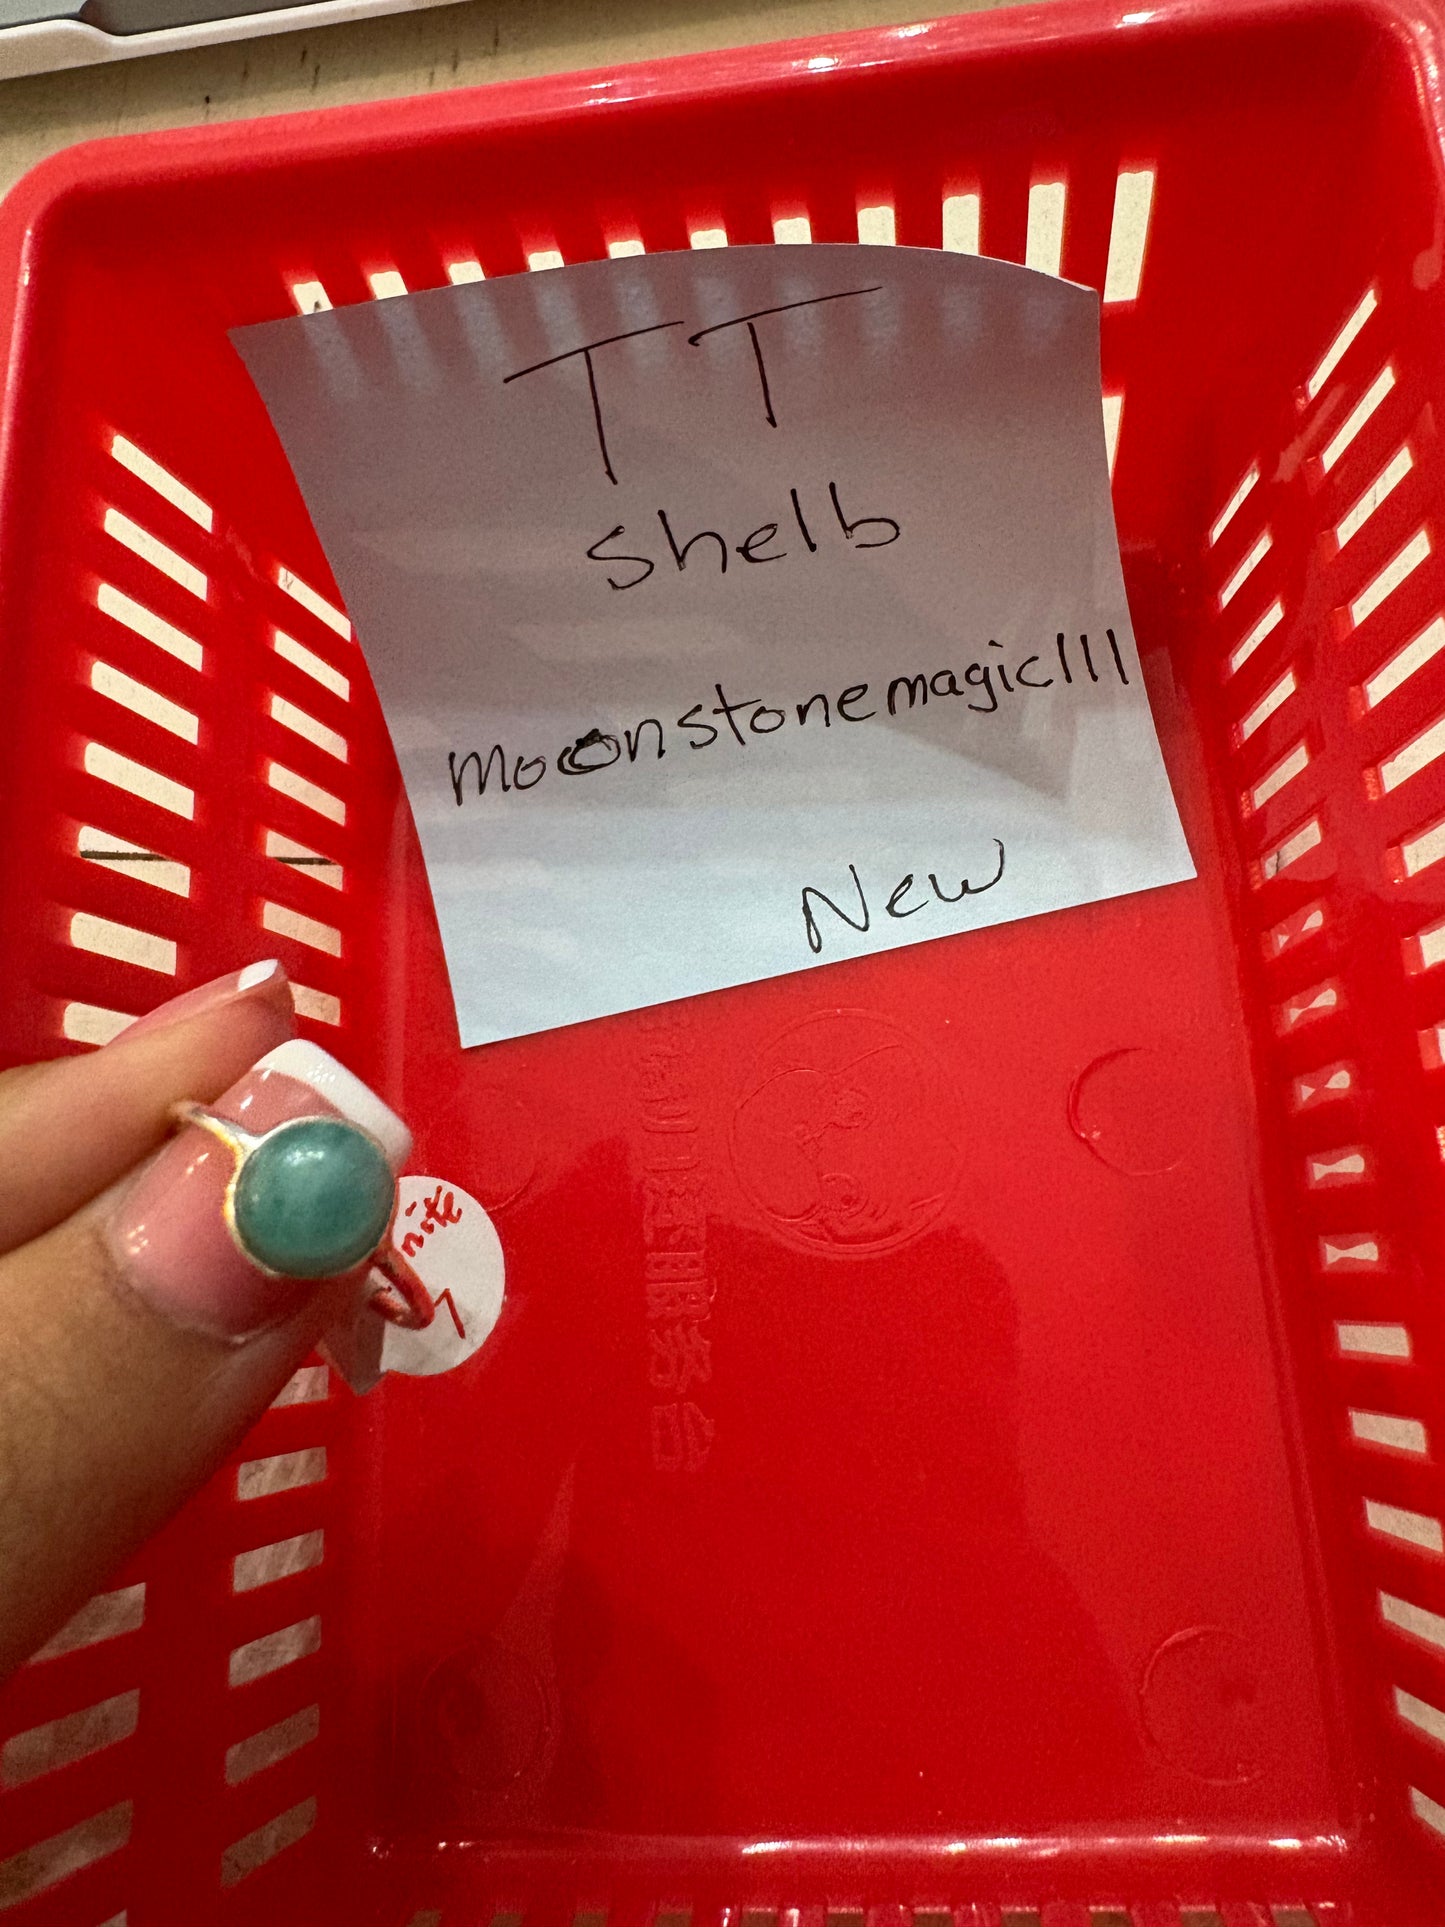 TT
Shelb
moonstonemagic111
New
nite
7